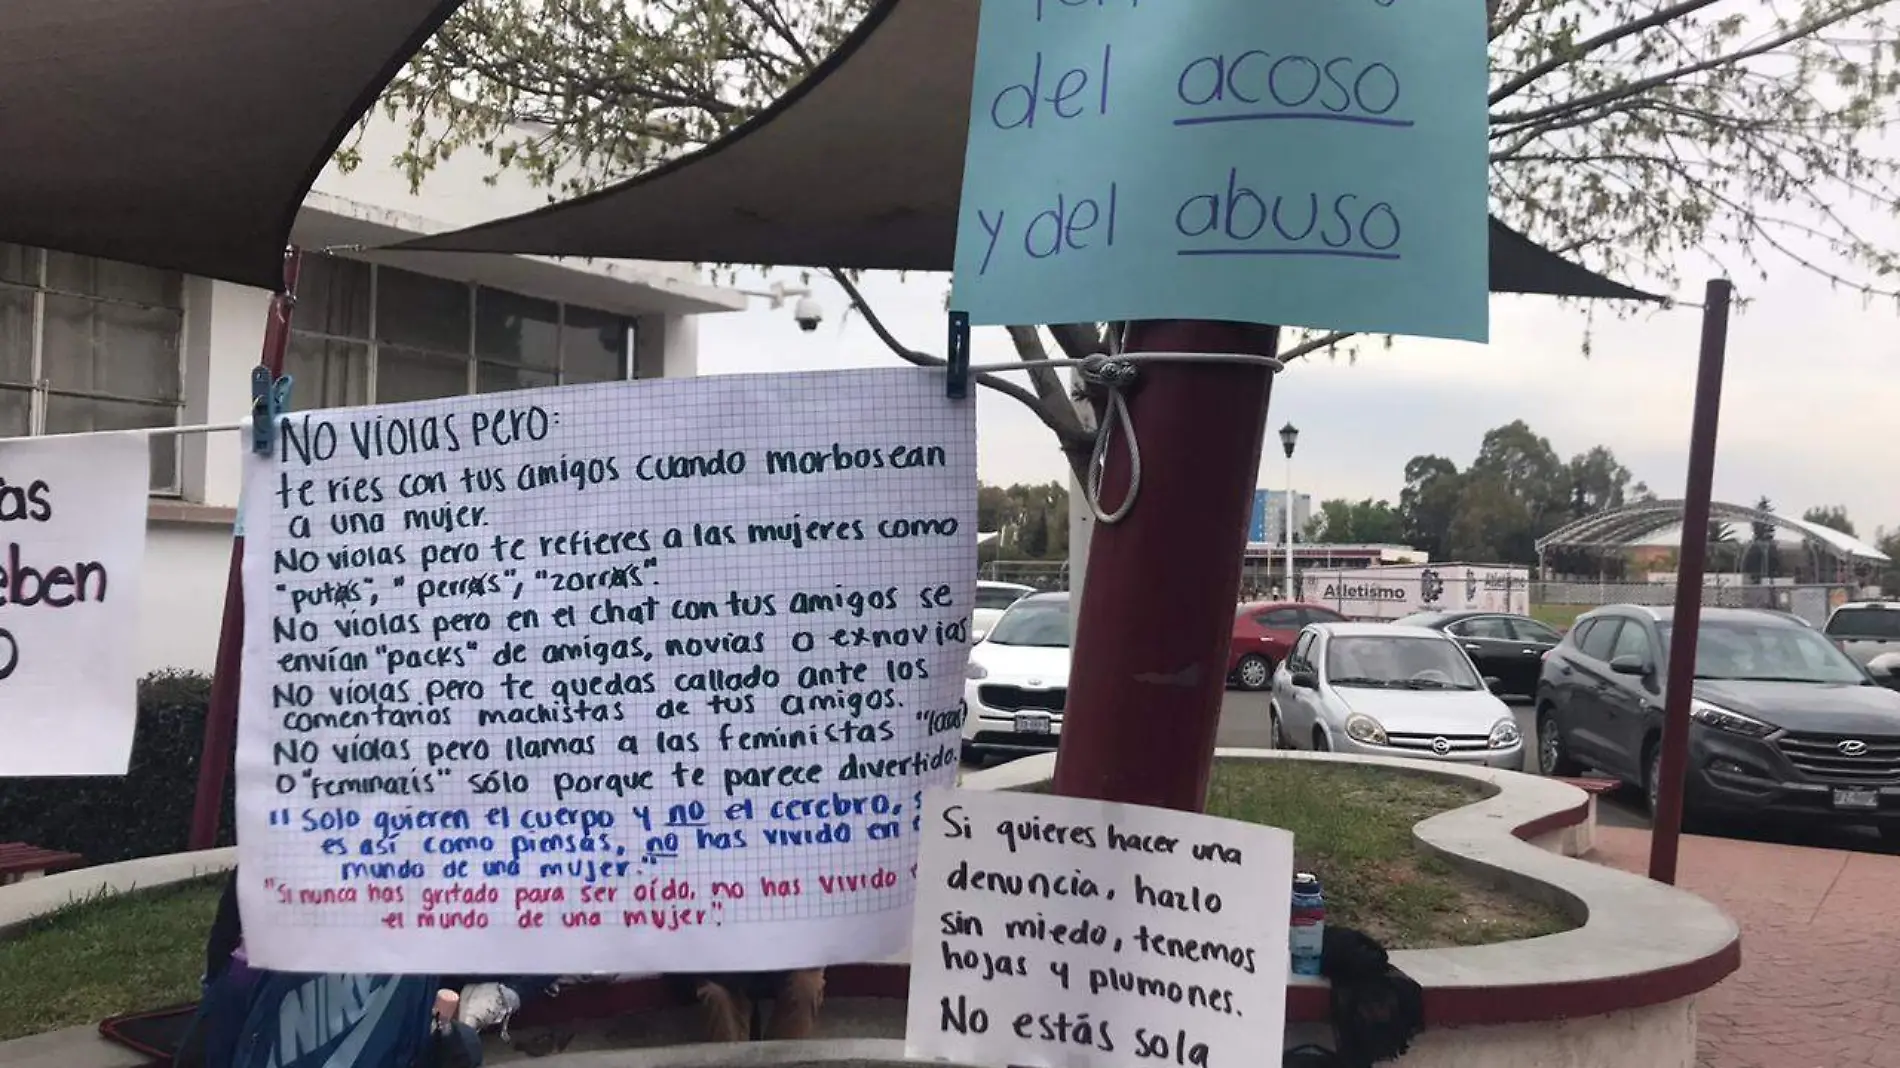 del acoso
y del abuso
No violas pero:
te ries con tus amigos cuando morbosean
a una mujer.
No violas pero te refieres a las mujeres como
"putas", "perras", "zorras".
No violas pero en el chat con tus amigos se
envían "packs" de amigas, novias o exnovias
No violas pero te quedas callado ante los
comentarios machistas de tus amigos.
No violas pero llamas a las feministas
o "feminazis" sólo porque te parece divertido.
"Solo quieren el cuerpo y no el cerebro,
es así como piensas, no has vivido en
mundo de una mujer."
"Si nunca has gritado para ser oído, no has vivido
el mundo de una mujer".
Si quieres hacer una
denuncia, hazlo
sin miedo, tenemos
hojas y plumones.
No estás sola
as
eben
o
Atletismo
Atletismo
NIKE